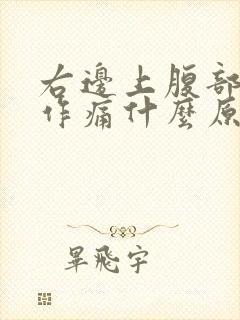 右邊上腹部
作痛什麼原
畢飛宇